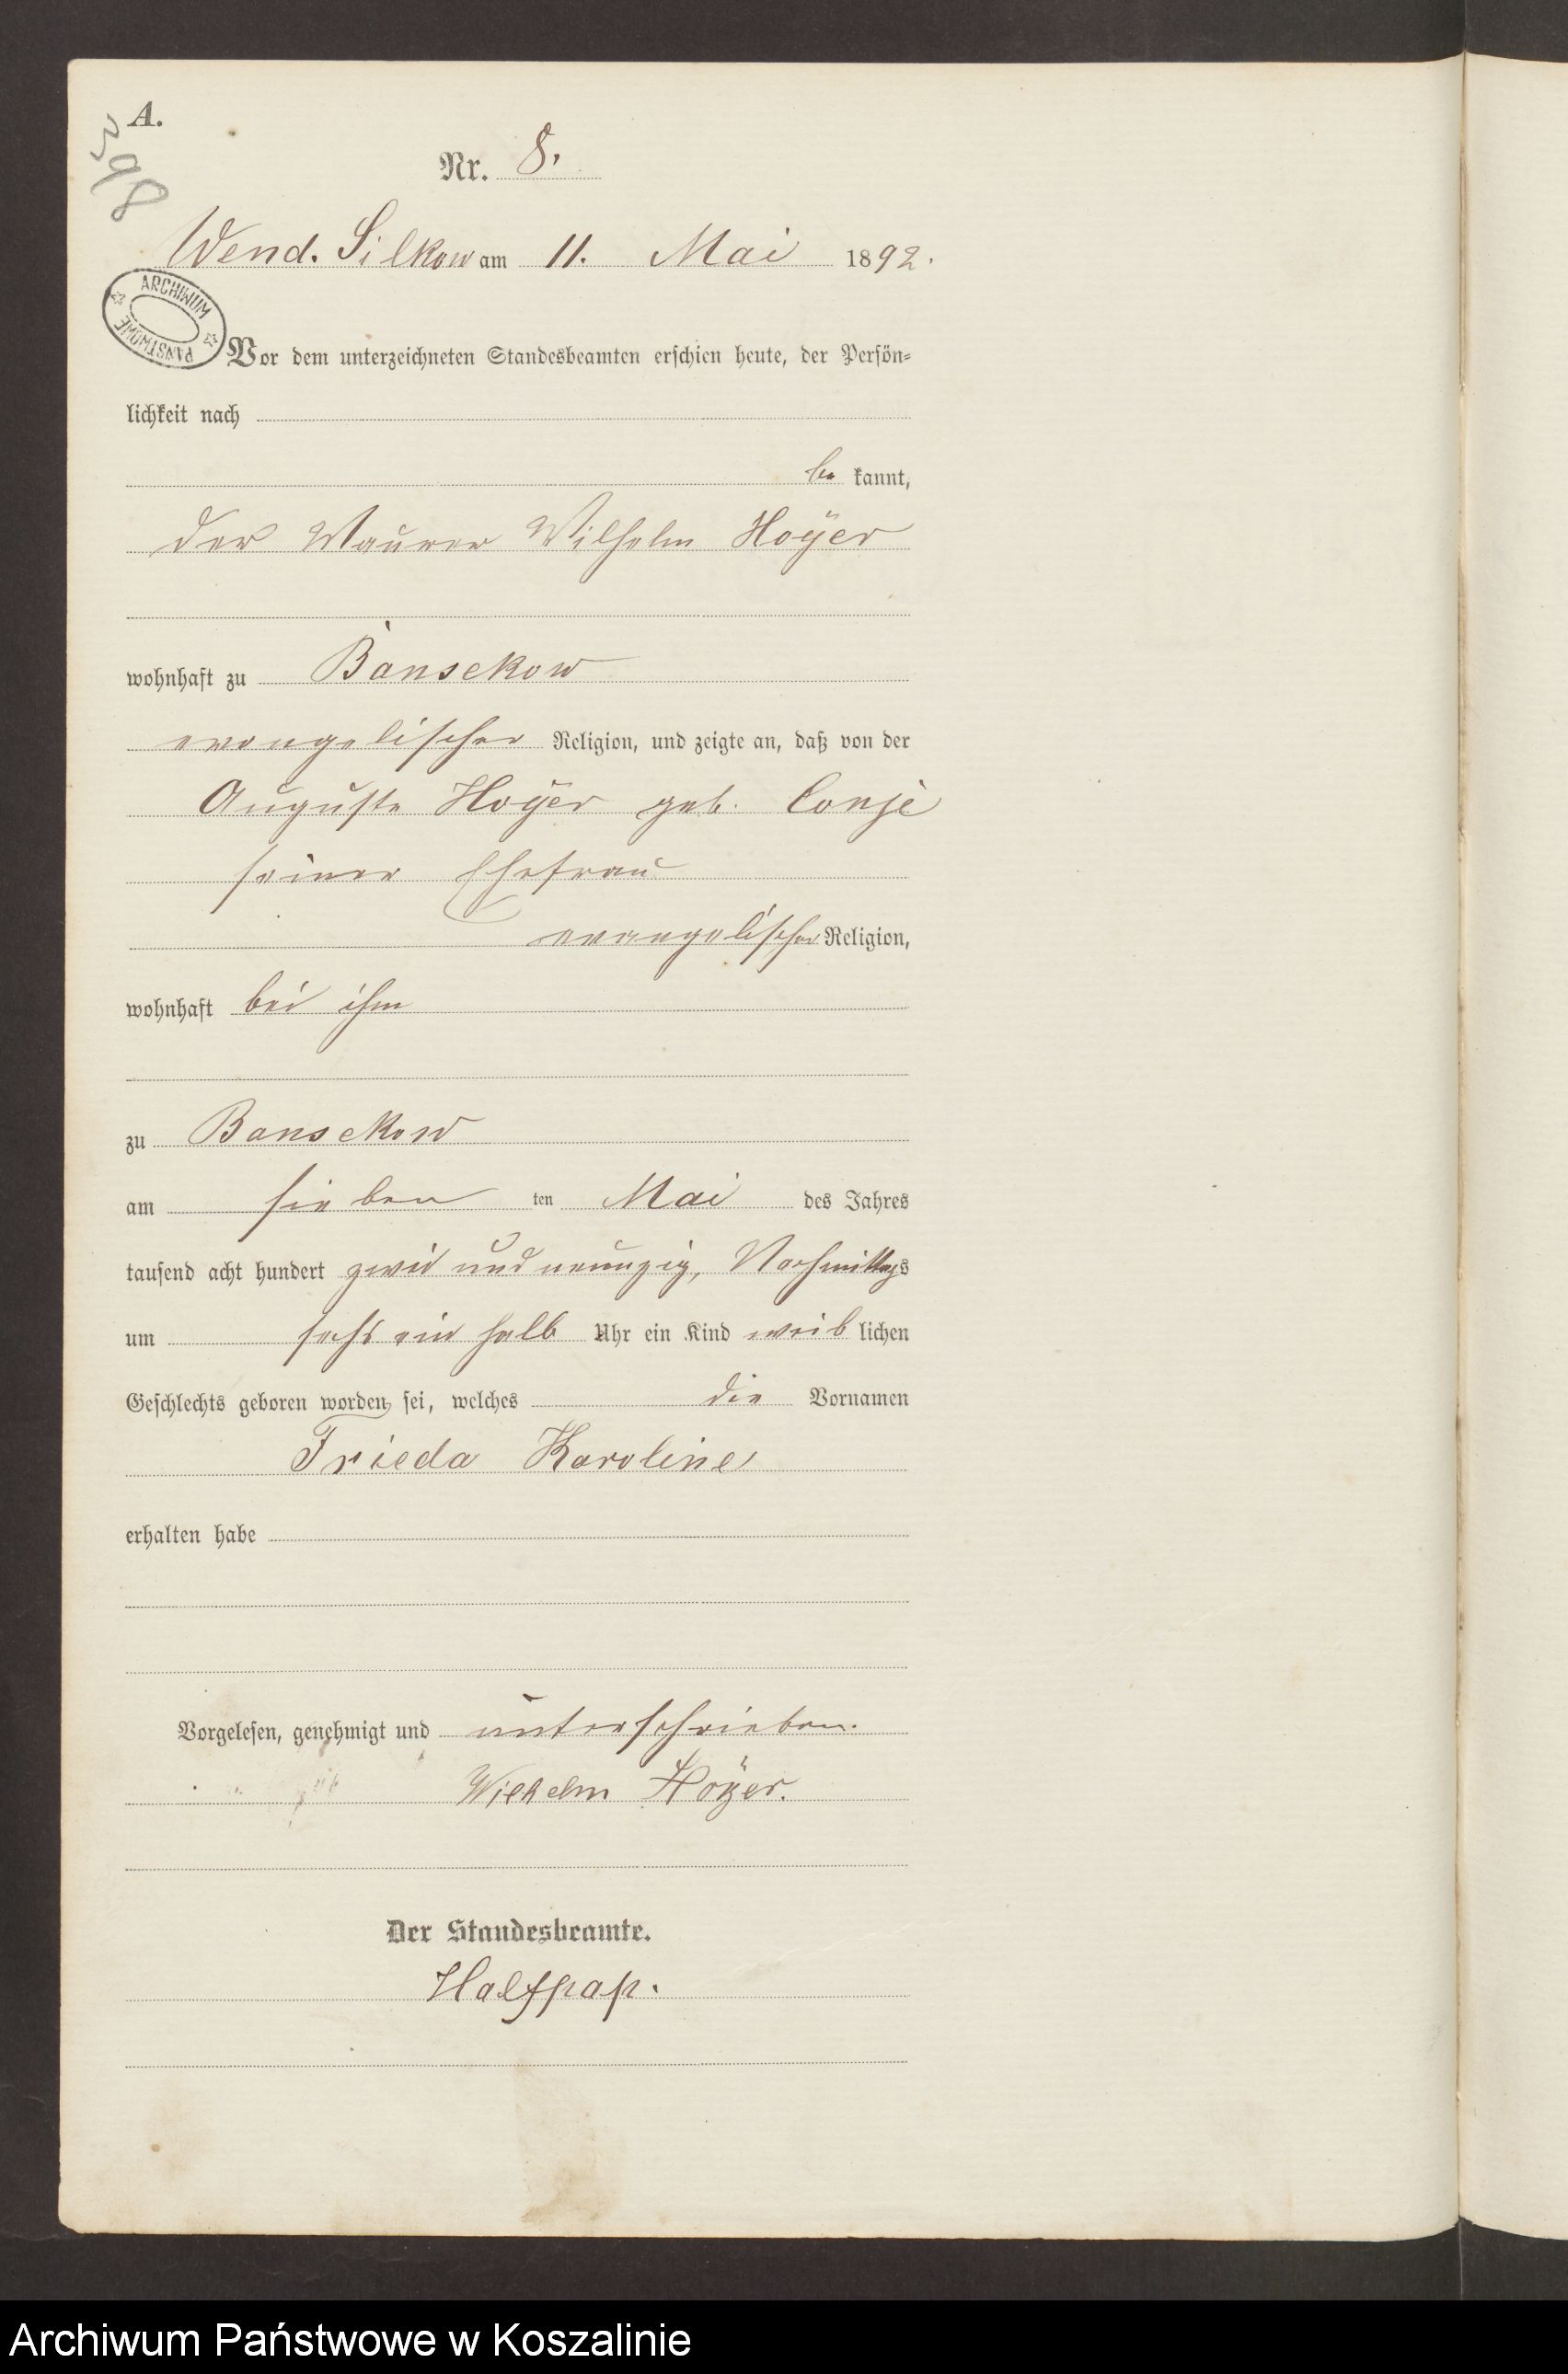 A.
398
Nr. 8.
Wend. Silkow am 11. Mai 1892.
ARCHIWUM PAŃSTWOWE
Vor dem unterzeichneten Standesbeamten erschien heute, der Persön-
lichkeit nach
be kannt,
der Maurer Wilhelm Hoÿer
wohnhaft zu Bansekow
evangelischer Religion, und zeigte an, daß von der
Auguste Hoÿer geb. Conje
seiner Ehefrau
evangelischer Religion,
wohnhaft bei ihm
zu Bansekow
am sieben ten Mai des Jahres
tausend acht hundert zwei und neunzig, Nachmittags
um sechs ein halb Uhr ein Kind weib lichen
Geschlechts geboren worden sei, welches die Vornamen
Frieda Karoline
erhalten habe
Vorgelesen, genehmigt und unterschrieben.
Wilhelm Hoÿer.
Der Standesbeamte.
Halfpap.
Archiwum Państwowe w Koszalinie